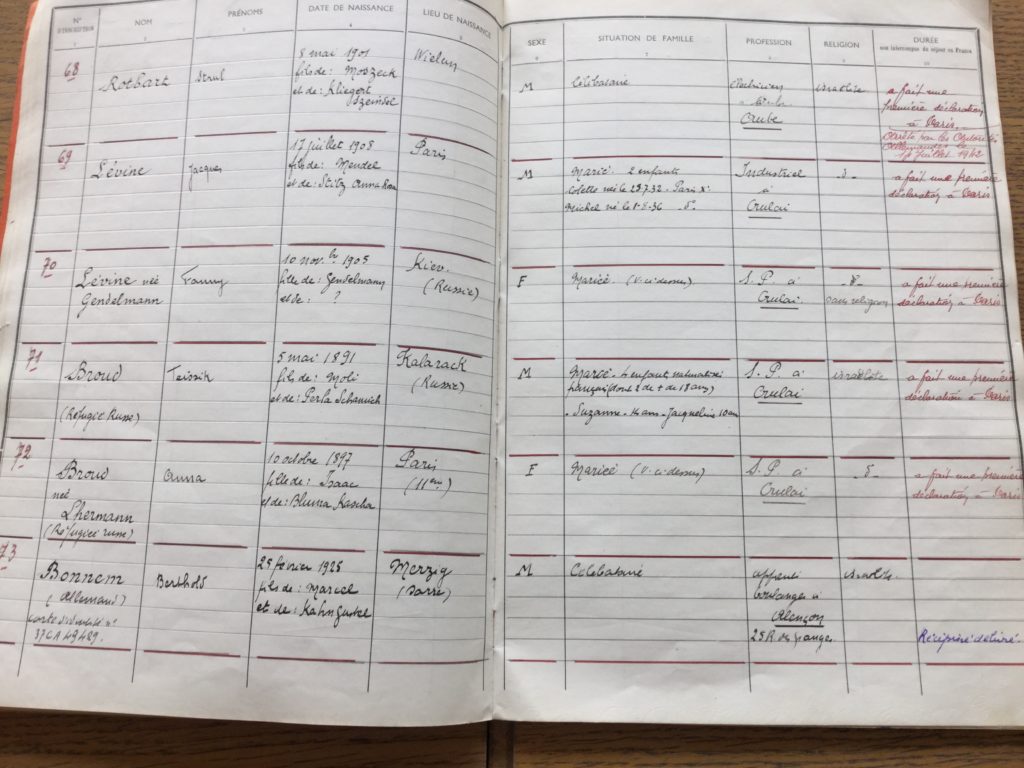 N° D'INSCRIPTION NOM PRÉNOMS DATE DE NAISSANCE LIEU DE NAISSANCE
1 2 3 4 5
68 Rotbart Srul 8 mai 1901 Wielun
fils de: Moszeck
et de: Kliegert
69 Lévine Jacques 17 juillet 1908 Paris
fils de: Mendel
et de: Stitz Anna Rosa
70 Lévine née Fanny 10 novbre 1905 Kiev
Gendelmann fille de: Gendelmann (Russie)
et de: ?
71 Broud 5 mai 1891 Kalarack
fils de: Moli (Russie)
et de: Perla
(Réfugié Russe)
72 Broud Anna 10 octobre 1897 Paris
née fille de: Isaac (11ème)
Lhermann et de: Bluma
(Réfugiée russe)
73 Bonnem Berthold 25 février 1925 Merzig
(Allemand) fils de: Marcel (Sarre)
carte d'identité n° et de: Kahn
37CA49489.
SEXE SITUATION DE FAMILLE PROFESSION RELIGION DURÉE
non interrompue du séjour en France
6 7 8 9 10
M Célibataire israélite a fait une
première déclaration
Crube à Paris.
Allemandes le
17 juillet 1942
M Marié. 2 enfants Industriel -d- a fait une première
Colette née le 28.7.32. Paris X° à déclaration à Paris
Michel né le 1-8-36 -d°- Crulai
F Mariée (v. ci-dessus) S.P. à -d°- a fait une première
Crulai sans religion déclaration à Paris
M Marié. 4 enfants naturalisés S.P. à israélite a fait une première
français (dont 2 de + de 18 ans) Crulai déclaration à Paris
- Suzanne - 14 ans - Jacqueline 10 ans
F Mariée (v. ci-dessus) S.P. à -d- a fait une première
Crulai déclaration à Paris
M Célibataire apprenti israélite.
boulanger à
Alençon
25 R. des Granges Récépissé délivré.